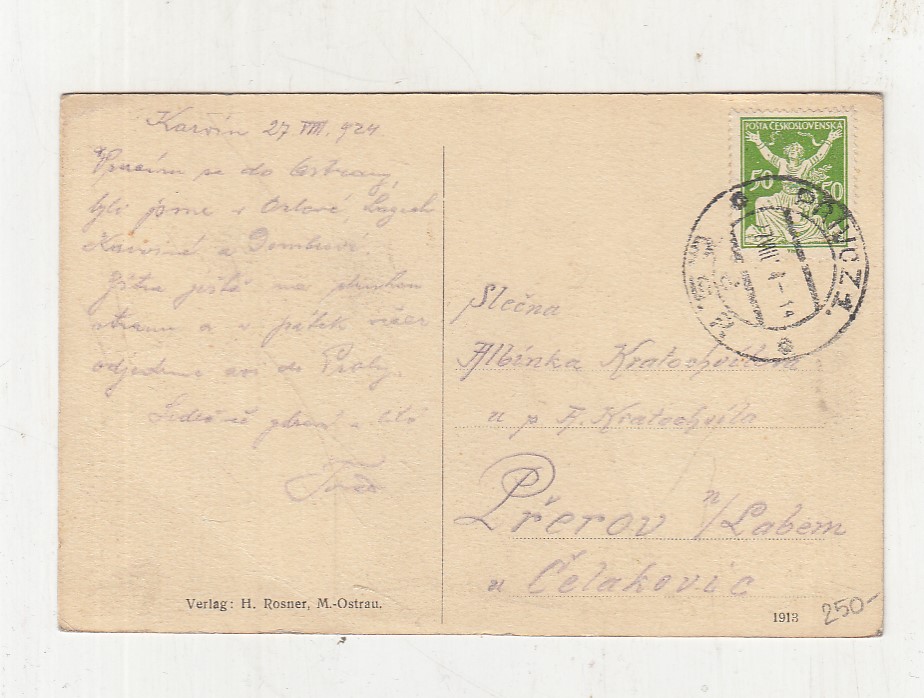 Karvin 27 VIII. 924.
Vracím se do Ostravy,
byli jsme v Orlové, Lazech
Karviné a Dombrové
Zítra ještě na druhou
stranu a v pátek večer
odjedeme asi do Prahy.
Srdečně zdraví a líbá
POŠTA ČESKOSLOVENSKA
50 50
Slečna
Albínka Kratochvílova
u p A. Kratochvíla
Přerov n/Labem
u Čelakovic
Verlag: H. Rosner, M.-Ostrau.
1913
250-